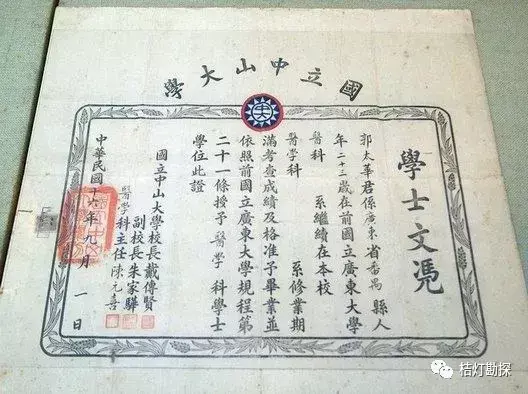 國立中山大學
學士文凴
郭太華君係廣東省番禺縣人
年二十三歲在前國立廣東大學
醫科 系繼續在本校
醫學科 系修業期
滿考查成績及格准予畢業並
依照前國立廣東大學規程第
二十一條授予醫學科學士
學位此證
國立中山大學校長戴傳賢
副校長朱家驊
醫學科主任陳元喜
中華民國十六年九月一日
桔灯勘探